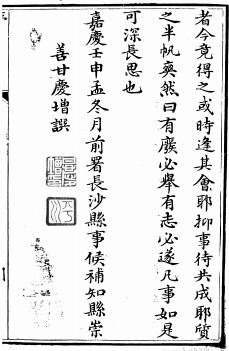 者今竟得之或時逢其會耶抑事待共成耶質
之半帆奭然曰有廢必舉有志必遂凡事如是
可深長思也
嘉慶壬申孟冬月前署長沙縣事候補知縣崇
善甘慶增譔